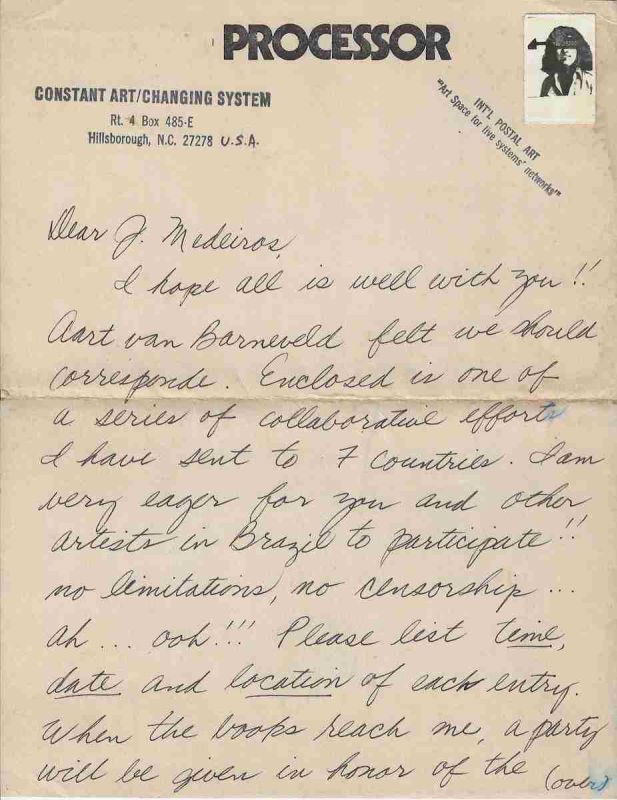 PROCESSOR
CONSTANT ART/CHANGING SYSTEM
Rt. 4 Box 485-E
Hillsborough, N.C. 27278 U.S.A.
INT'L POSTAL ART
"'Art Space for live systems' networks'"
Dear J. Medeiros,
I hope all is well with you!!
Aart van Barneveld felt we should
corresponde. Enclosed is one of
a series of collaborative efforts
I have sent to 7 countries. I am
very eager for you and other
artists in Brazil to participate!!
no limitations, no censorship...
ah... ooh!!! Please list time,
date and location of each entry.
When the books reach me, a party
will be given in honor of the (over)